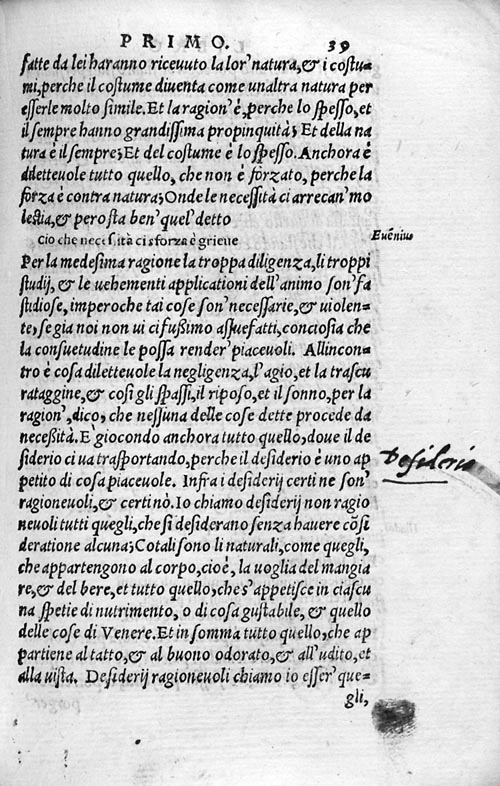 PRIMO. 39
fatte da lei haranno riceuuto la lor' natura, & i costu-
mi, perche il costume diuenta come unaltra natura per
esserle molto simile. Et la ragion' è, perche lo spesso, et
il sempre hanno grandissima propinquità; Et della na
tura è il sempre; Et del costume è lo spesso. Anchora è
diletteuole tutto quello, che non è forzato, perche la
forza è contra natura; Onde le necessità ci arrecan' mo
lestia, & pero sta ben' quel' detto
Cio che necessità ci sforza è grieue
Euēnius
Per la medesima ragione la troppa diligenza, li troppi
studij, & le uehementi applicationi dell'animo son' fa
stidiose, imperoche tai cose son' necessarie, & uiolen-
te, se gia noi non ui ci fussimo assuefatti, conciosia che
la consuetudine le possa render' piaceuoli. Allincon-
tro è cosa diletteuole la negligenza, l'agio, et la trascu
rataggine, & così gli spassi, il riposo, et il sonno, per la
ragion', dico, che nessuna delle cose dette procede da
necessità. E' giocondo anchora tutto quello, doue il de
siderio ci ua trasportando, perche il desiderio è uno ap
Desiderio
petito di cosa piaceuole. Infra i desiderij certi ne son'
ragioneuoli, & certi nò. Io chiamo desiderij non ragio
neuoli tutti quegli, che si desiderano senza hauere cōsi
deratione alcuna; Cotali sono li naturali, come quegli,
che appartengono al corpo, cioè, la uoglia del mangia
re, & del bere, et tutto quello, che s'appetisce in ciascu
na spetie di nutrimento, o di cosa gustabile, & quello
delle cose di Venere. Et in somma tutto quello, che ap
partiene al tatto, & al buono odorato, & all'udito, et
alla uista. Desiderij ragioneuoli chiamo io esser' que-
gli,